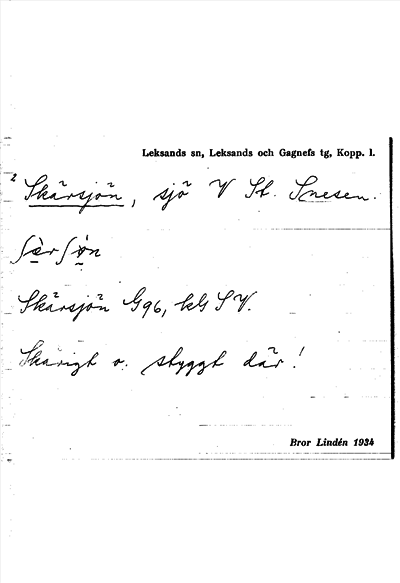 Leksands sn, Leksands och Gagnefs tg, Kopp. l.
2 Skärsjön, sjö V St. Snesen.
ʃèrʃøn
Skärsjön G96, kls SV.
Skärigt o. styggt där!
Bror Lindén 1934